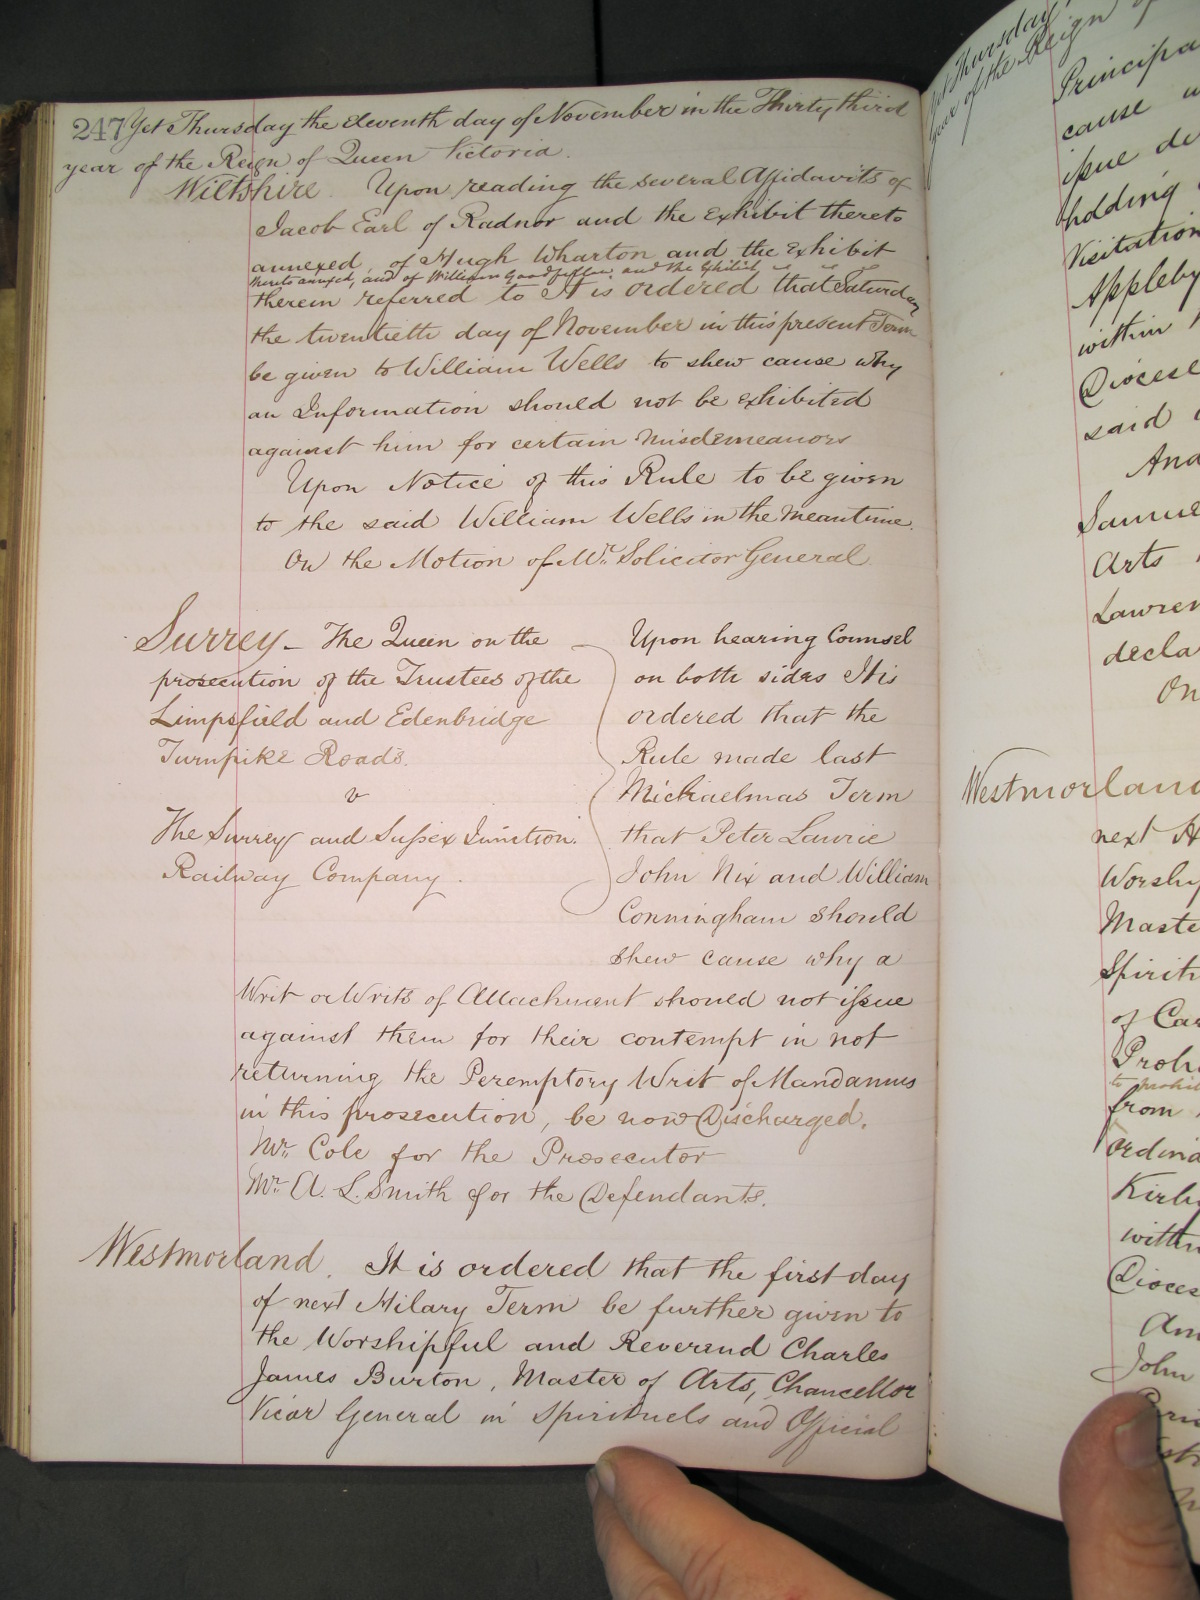 247 Yet Thursday the Eleventh day of November in the Thirty third
year of the Reign of Queen Victoria.
Wiltshire. Upon reading the several Affidavits of
Jacob Earl of Radnor and the Exhibit thereto
annexed, of Hugh Wharton and the Exhibit
thereto annexed, and of William Goodfellow and the Exhibit
therein referred to It is ordered that Saturday
the twentieth day of November in this present Term
be given to William Wells to shew cause why
an Information should not be exhibited
against him for certain Misdemeanors
Upon Notice of this Rule to be given
to the said William Wells in the meantime.
On the Motion of Mr. Solicitor General
Surrey – The Queen on the
prosecution of the Trustees of the
Limpsfield and Edenbridge
Turnpike Roads.
v
The Surrey and Sussex Junction
Railway Company.
Upon hearing Counsel
on both sides It is
ordered that the
Rule made last
Michaelmas Term
that Peter Laurie
John Nix and William
Conningham should
shew cause why a
Writ or Writs of Attachment should not issue
against them for their contempt in not
returning the Peremptory Writ of Mandamus
in this prosecution, be now Discharged.
Mr. Cole for the Prosecutor
Mr. A. L. Smith for the Defendants.
Westmorland. It is ordered that the first day
of next Hilary Term be further given to
the Worshipful and Reverend Charles
James Burton, Master of Arts, Chancellor
Vicar General in Spirituels and Official
Yet Thursday
year of the Reign of
Principa
cause
issue de
holding
Visitation
Appleby
within
Diocese
said
And
Samue
Arts
Lawren
decla
On
Westmorland
next H
Worship
Maste
Spirit
of Car
Prohi
to prohib
from
ordina
Kirby
within
Dioces
An
John